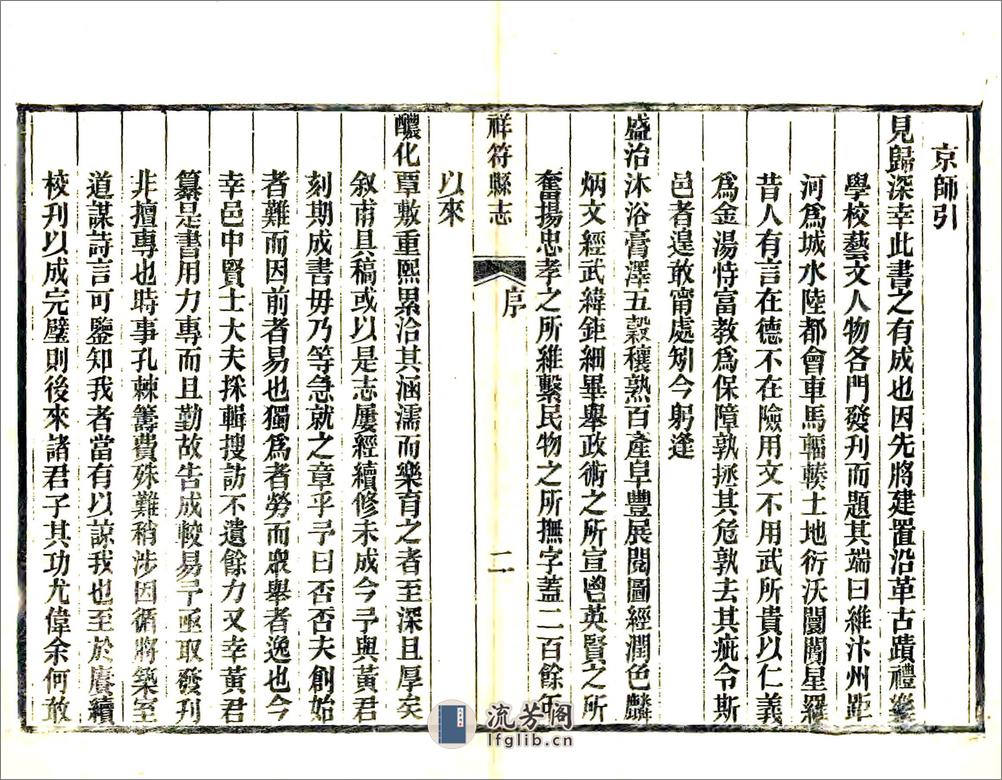 京師引
見歸深幸此書之有成也因先將建置沿革古蹟禮樂
學校藝文人物各門發刊而題其端曰維汴州距
河爲城水陸都會車馬輻輳土地衍沃闤闠星羅
昔人有言在德不在險用文不用武所貴以仁義
爲金湯恃富教爲保障孰拯其危孰去其疵令斯
邑者遑敢甯處矧今躬逢
盛治沐浴膏澤五穀穰熟百產阜豐展閱圖經潤色麟
炳文經武緯鉅細畢舉政術之所宣鬯英賢之所
奮揚忠孝之所維繫民物之所撫字蓋二百餘年
祥符縣志
序
二
以來
醲化覃敷重熙累洽其涵濡而樂育之者至深且厚矣
叙甫具稿或以是志屢經續修未成今予與黃君
刻期成書毋乃等急就之章乎予曰否否夫創始
者難而因前者易也獨爲者勞而衆舉者逸也今
幸邑中賢士大夫採輯搜訪不遺餘力又幸黃君
纂是書用力專而且勤故告成較易予亟取發刊
非擅專也時事孔棘籌費殊難稍涉因循將築室
道謀詩言可鑒知我者當有以諒我也至於賡續
校刊以成完璧則後來諸君子其功尤偉余何敢
流芳閣
lfglib.cn